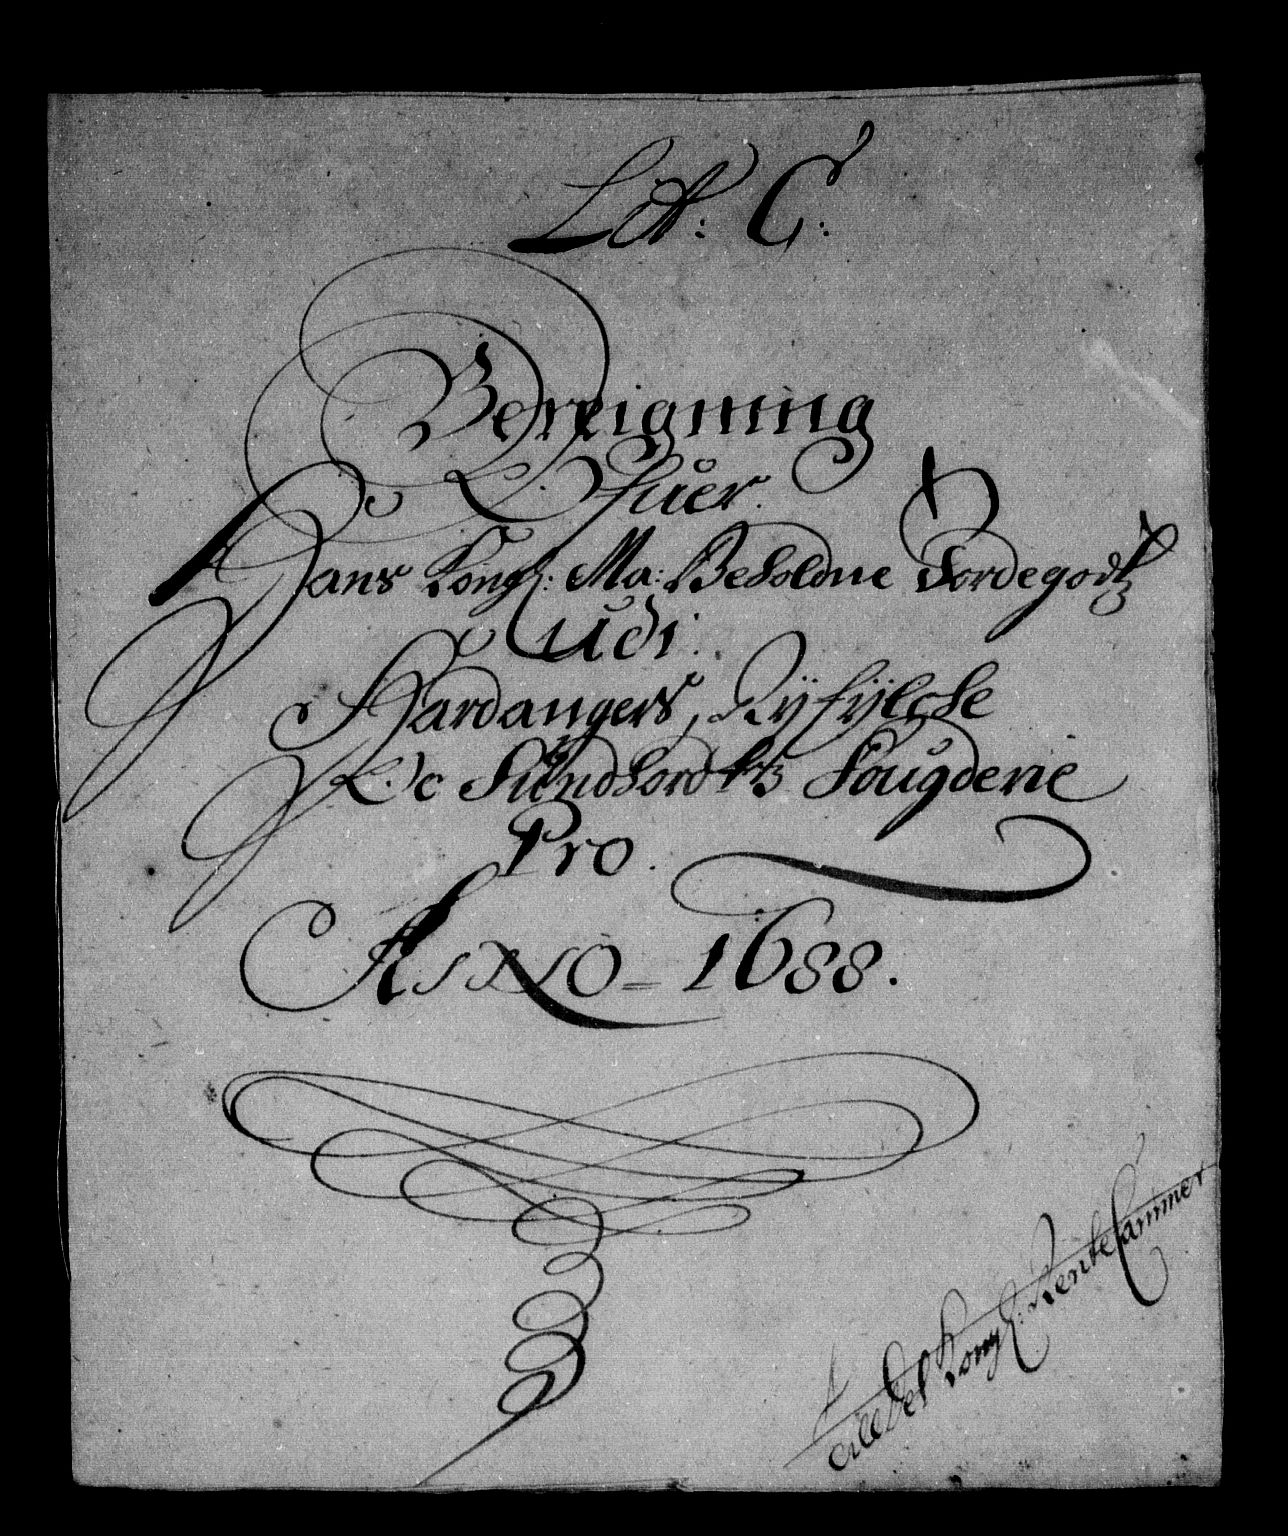 Litt: C:
Bereigning
Ofuer.
Hans Kongl: Ma: Beholdne Jordegodtz
Udi.
Hardangers, Ryfylche
Oc Sundhordlehns Fougderie
Pro.
ANNO - 1688.
til det Kongl: Rentekammer